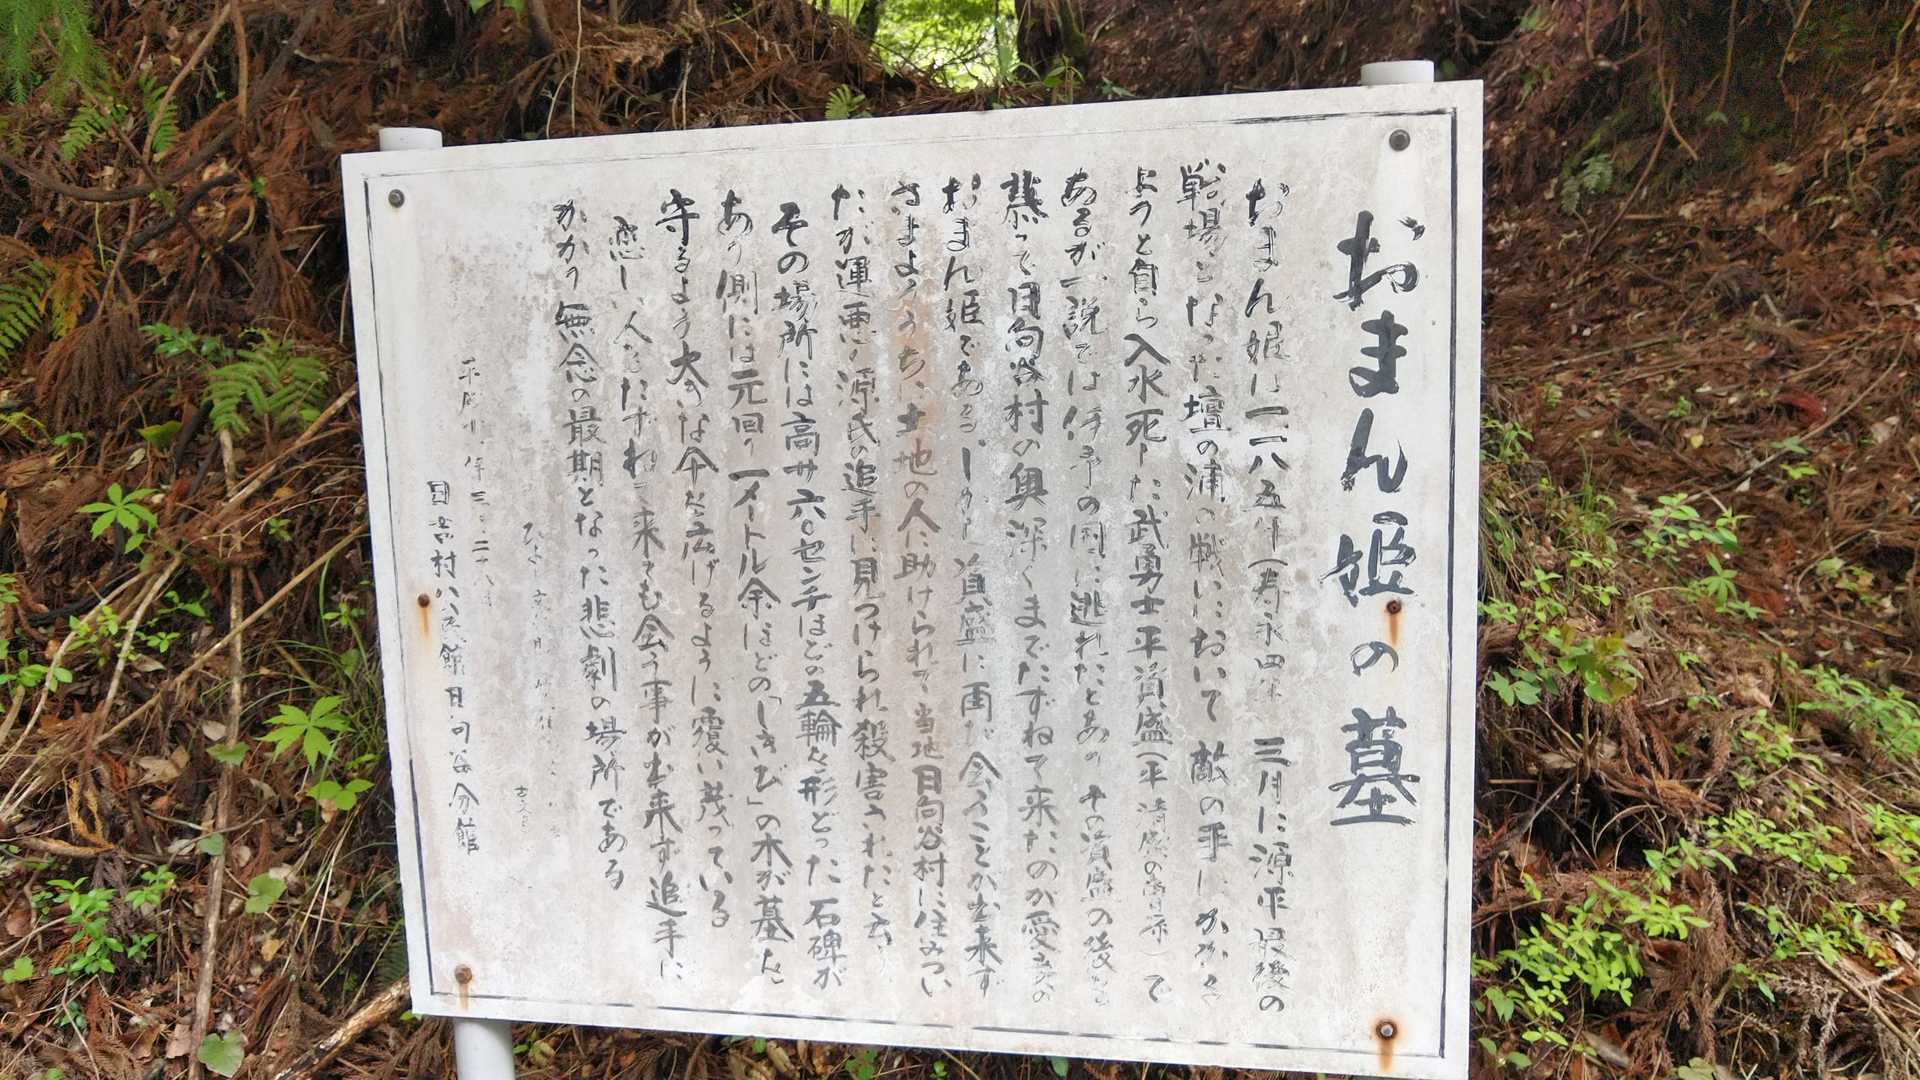 おまん姫の墓
おまん姫は一一八五年(寿永四年 三月に源平最後の
戦場となった壇の浦の戦いにおいて 敵の手にかかる
ようと自ら入水死した武勇士平資盛(平清盛の
)で
あるが、一説では伊予の国に逃れたとあり その資盛の後を
慕って日向谷村の奥深くまでたずねて来たのが愛妻の
おまん姫である。しかし 資盛に再び会うことが出来ず
さまようううちに土地の人に助けられて当地日向谷村に住みつい
たが運悪く源氏の追手に見つけられ殺害されたと云う
その場所には高サ六〇センチほどの五輪を形どった石碑が
あり側には元回り一メートル余ほどの「しきび」の木が墓を
守るよう大きな命を広げるように覆い茂っている
恋しい人をたずねて来ても会う事が出来ず追手に
かかり無念の最期となった悲劇の場所である
平成
年三
日吉村公民館日向谷分館